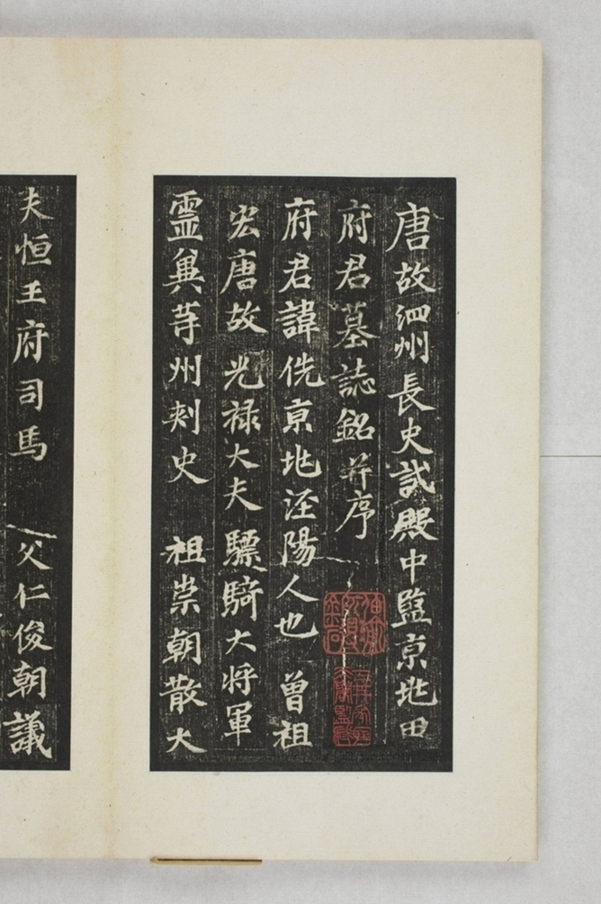 唐故泗州長史試殿中監京兆田
府君墓誌銘并序
府君諱侁京兆涇陽人也 曾祖
宏唐故光祿大夫驃騎大將軍
靈巽等州刺史 祖崇朝散大
夫恒王府司馬 父仁俊朝議